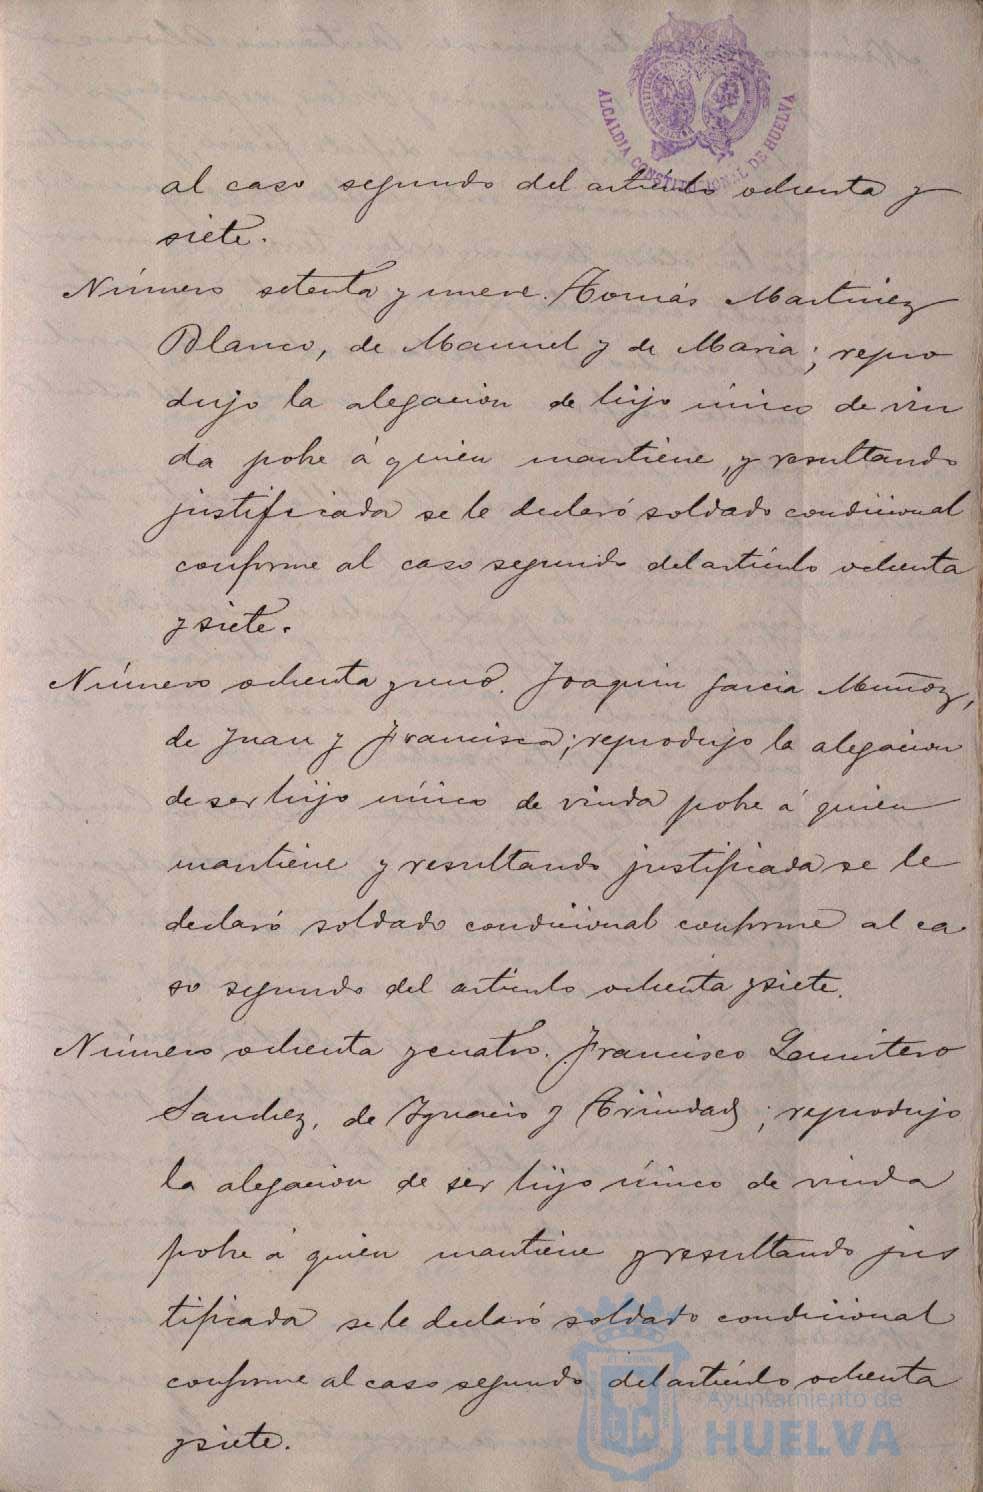 ALCALDIA CONSTITUCIONAL DE HUELVA
al caso segundo del artículo ochenta y
siete.
Número setenta y nueve. Tomás Martinez
Blanco, de Manuel y de Maria; repro
dujo la alegacion de hijo único de viu
da pobre á quien mantiene, y resultando
justificada se le declaró soldado condicional
conforme al caso segundo del artículo ochenta
y siete.
Número ochenta y uno. Joaquin Garcia Muñoz,
de Juan y Francisca; reprodujo la alegacion
de ser hijo único de viuda pobre á quien
mantiene y resultando justificada se le
declaró soldado condicional conforme al ca
so segundo del artículo ochenta y siete.
Número ochenta y cuatro. Francisco Quintero
Sanchez, de Ignacio y Trinidad; reprodujo
la alegacion de ser hijo único de viuda
pobre á quien mantiene y resultando jus
tificada se le declaró soldado condicional
conforme al caso segundo del artículo ochenta
y siete.
Ayuntamiento de
HUELVA